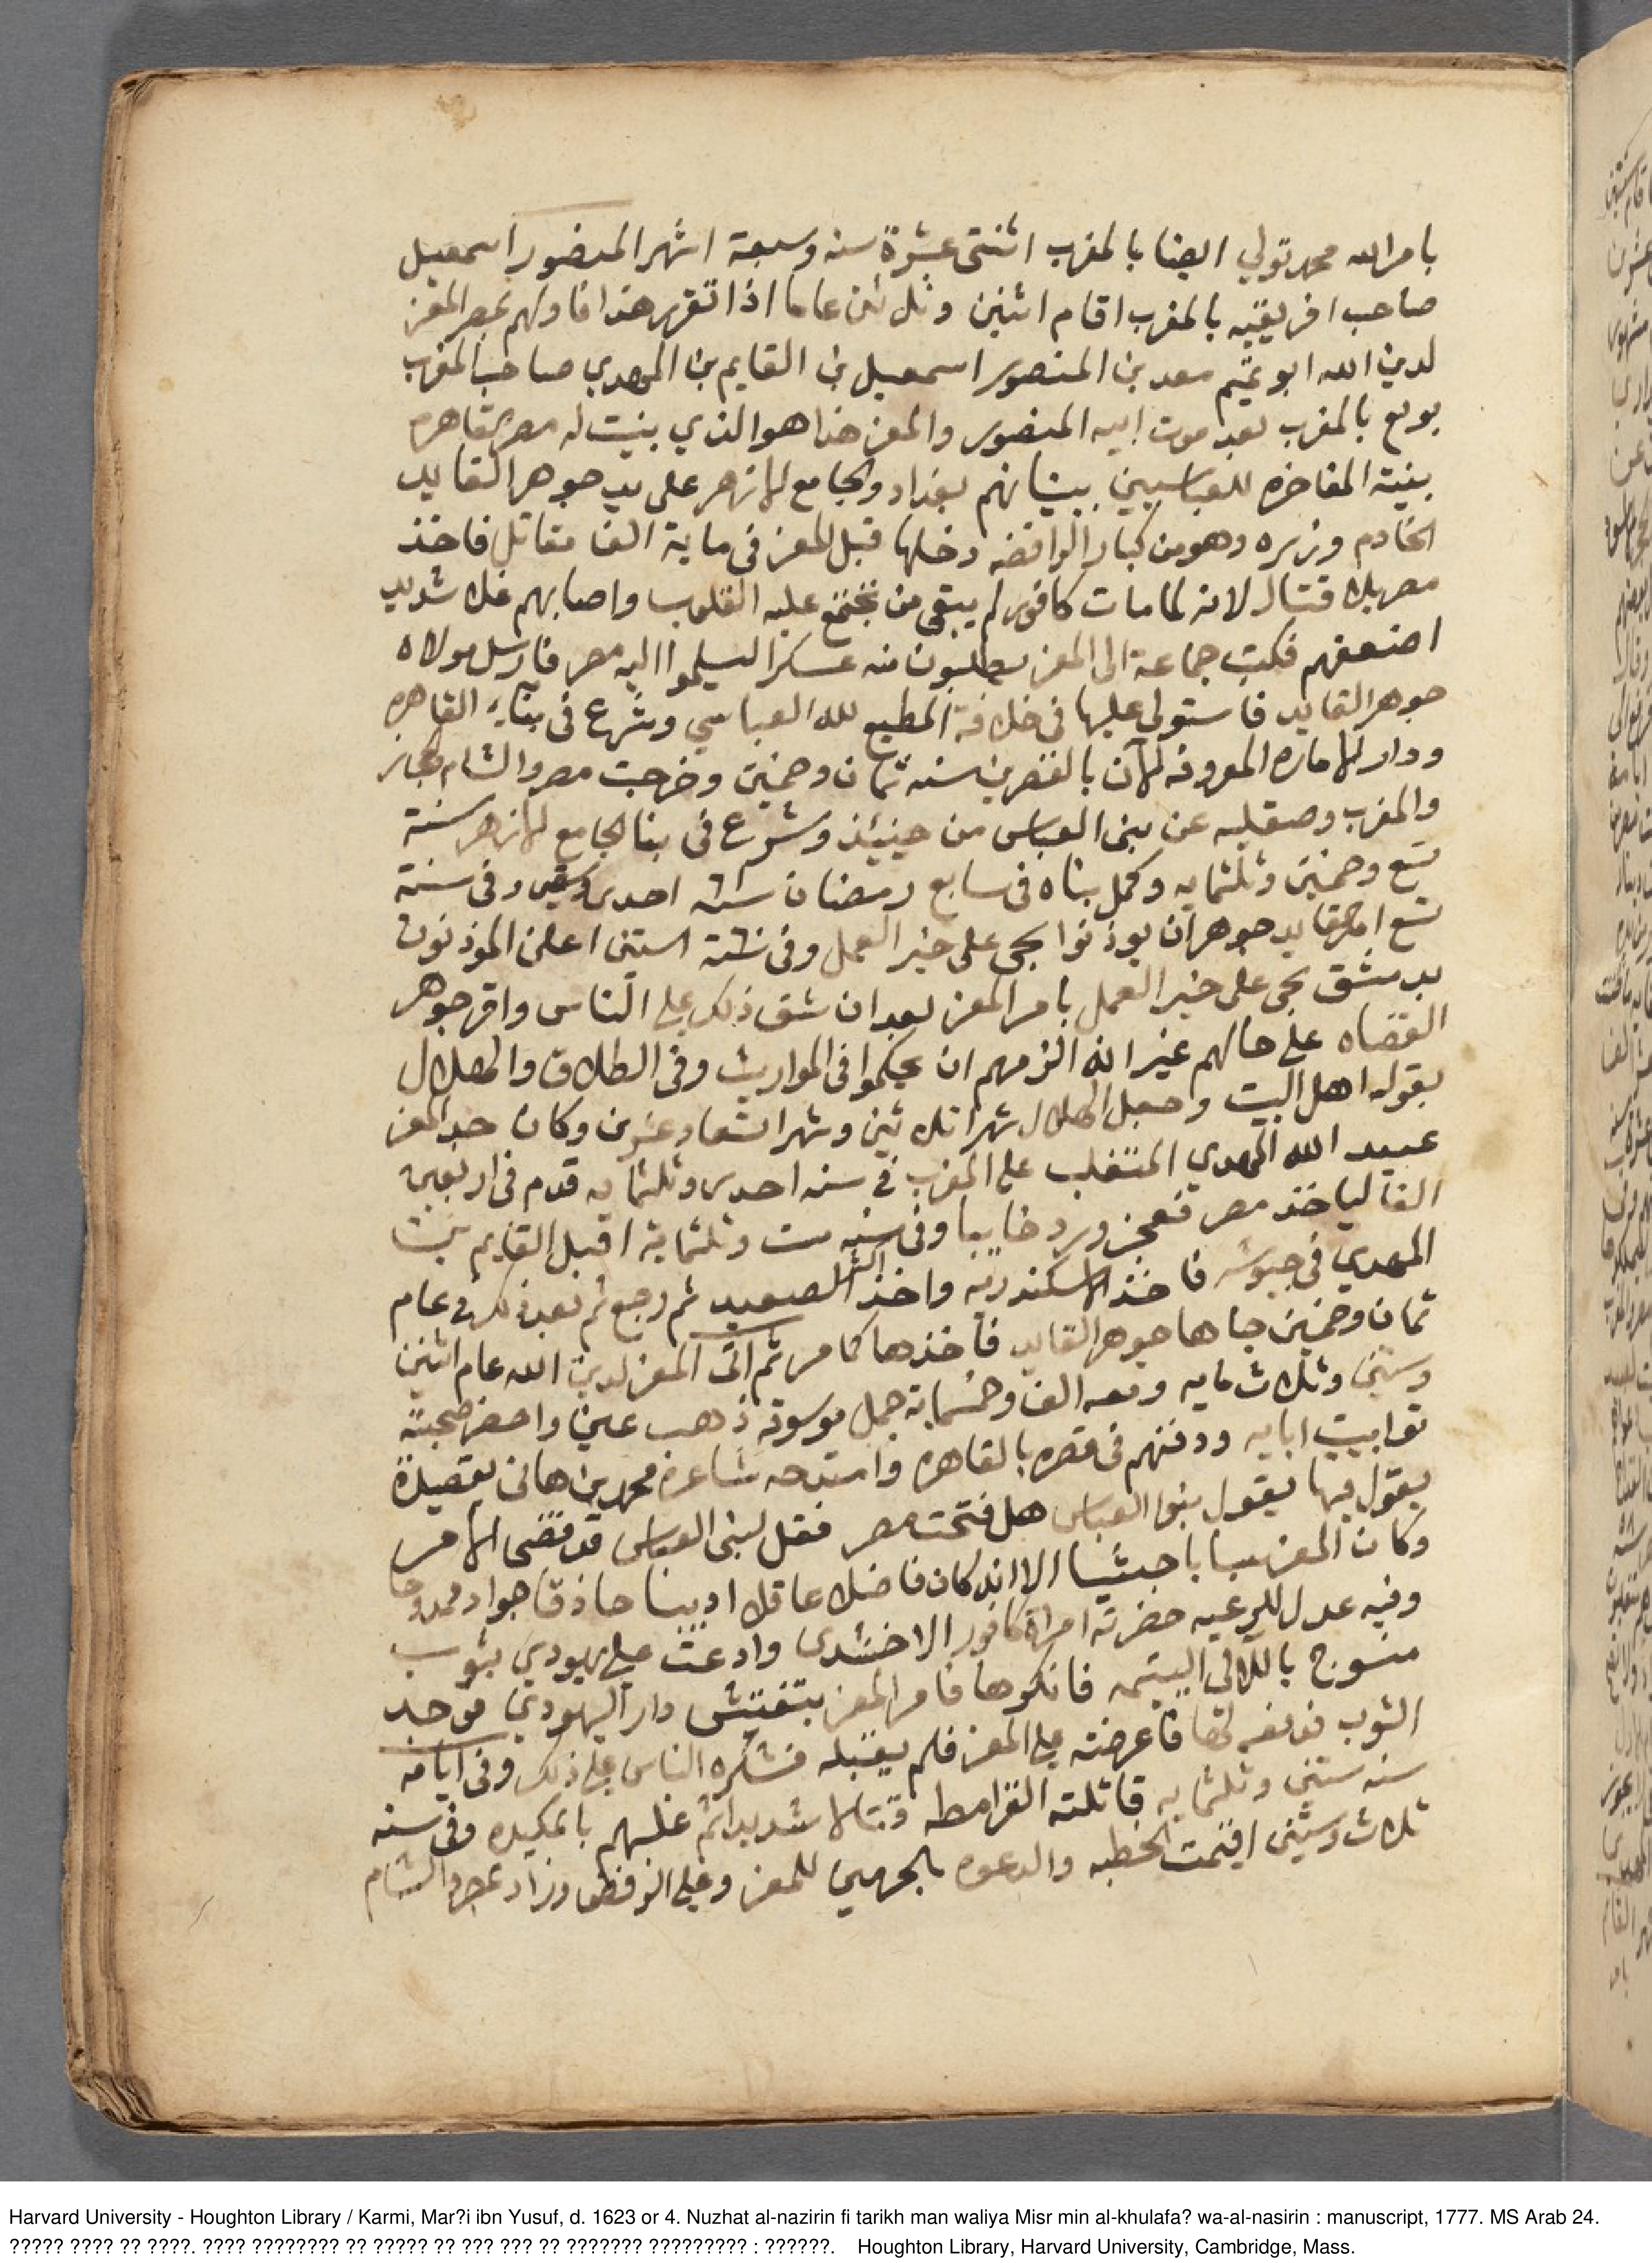 بامر الله محمد تولي ايضا بالمغرب اثنتى عشرة سنه وسبعة اشهر المنصور اسمعيل
صاحب افريقيه بالمغرب اقام اثنين وثلاثين عاما اذا تقرر هذا فاولهم بمصر المعز
لدين الله ابو تميم معد بن المنصور اسمعيل بن القايم بن المهدي صاحب المغرب
بويع بالمغرب بعد موت ابيه المنصور والمعز هذا هو الذي بنيت له مصر القاهره
بنية المفاخره للعباسيين ببنيانهم بغداد والجامع الازهر على يد جوهر القايد
الخادم وزيره وهو من كبار الرافضه دخلها قبل المعز فى ماية الف مقاتل فاخذ
مصر بلا قتال لانه لما مات كافور لم يبقى من تجتمع عليه القلوب واصابهم غلا شديد
اضعفهم فكتب جماعة الى المعز يطلبون منه عسكرا ليسلموا اليه مصر فارسل مولاه
جوهر القايد فاستولى عليها فى خلافة المطيع لله العباسي وشرع فى بناء القاهره
ودار الاماره المعروفه الآن بالقصرين سنه ثمان وخمسين وخرجت مصر والشام والحجاز
والمغرب وصقليه عن بنى العباس من حينيذ وشرع فى بنا الجامع الازهر سنة
تسع وخمسين وثلثمايه وكمل بناه فى سابع رمضان سنه احدى وستين وفى سنة
تسع امر القايد جوهر ان يوذنوا بحى على خير العمل وفى سنة ستين اعلن الموذنون
بدمشق بحى على خير العمل بامر المعز بعد ان شق ذلك على الناس واقر جوهر
القضاه على حالهم غير انه الزمهم ان يحكموا فى المواريث وفى الطلاق والهلال
بقوله اهل البيت وجعل الهلال شهرا ثلاثين وشهرا تسعا وعشرين وكان جد المعز
عبيد الله المهدي المتغلب على المغرب في سنه احدى وثلثمايه قدم فى اربعين
الفا لياخذ مصر فعجز ورد خايبا وفى سنه ست وثلثماية اقبل القايم بن
المهدي فى جيوشه فاخذ الاسكندريه واخذ اكثر الصعيد ثم رجع ثم بعد ذلك في عام
ثمان وخمسين جاها جوهر القايد فاخذها كما مر ثم اتى المعز لدين الله عام اثنين
وستين وثلاث مايه ومعه الف وخمسماية جمل موسوقه ذهب عين واحضر صحبته
توابيت ابايه ودفنهم فى قصره بالقاهره وامتدحه شاعره محمد بن هانى بقصيدة
يقول فيها يقول بنوا العباس هل فتحت مصر فقل لبنى العباس قد قضى الامر
وكان المعز سبابا خبيثا الا انه كان فاضلا عاقلا اديبا حاذقا جوادا ممدوحا
وفيه عدل للرعيه حضرته امراة كافور الاخشدى وادعت على يهودي بثوب
منسوج باللالى اليتيمه فانكرها فامر المعز بتفتيش دار اليهودي فوجد
الثوب فدفعه لها فاعرضته على المعز فلم يقبله فشكره الناس على ذلك وفى ايامه
سنه ستين وثلثمايه قاتلته القرامطه قتالا شديدا ثم غلبهم بالمكيده وفى سنه
ثلاث وستين اقيمت الخطبه والدعوه بالحرمين للمعز وغلى الرفض وزاد بمصر والشام
Harvard University - Houghton Library / Karmi, Mar?i ibn Yusuf, d. 1623 or 4. Nuzhat al-nazirin fi tarikh man waliya Misr min al-khulafa? wa-al-nasirin : manuscript, 1777. MS Arab 24.
????? ???? ?? ????. ???? ???????? ?? ????? ?? ??? ??? ?? ??????? ????????? : ??????. Houghton Library, Harvard University, Cambridge, Mass.